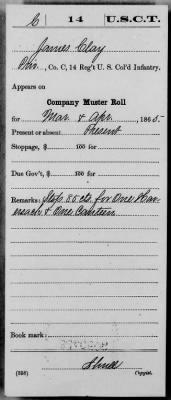 C | 14 | U.S.C.T.
James Clay
Pvt., Co. C, 14 Reg't U. S. Col'd Infantry.
Appears on
Company Muster Roll
for Mar & Apr, 1865.
Present or absent Present
Stoppage, $ 100 for
Due Gov't, $ 100 for
Remarks: Stop 85 cts. for One Haversack & One Canteen
Book mark:
(358) Copyist.